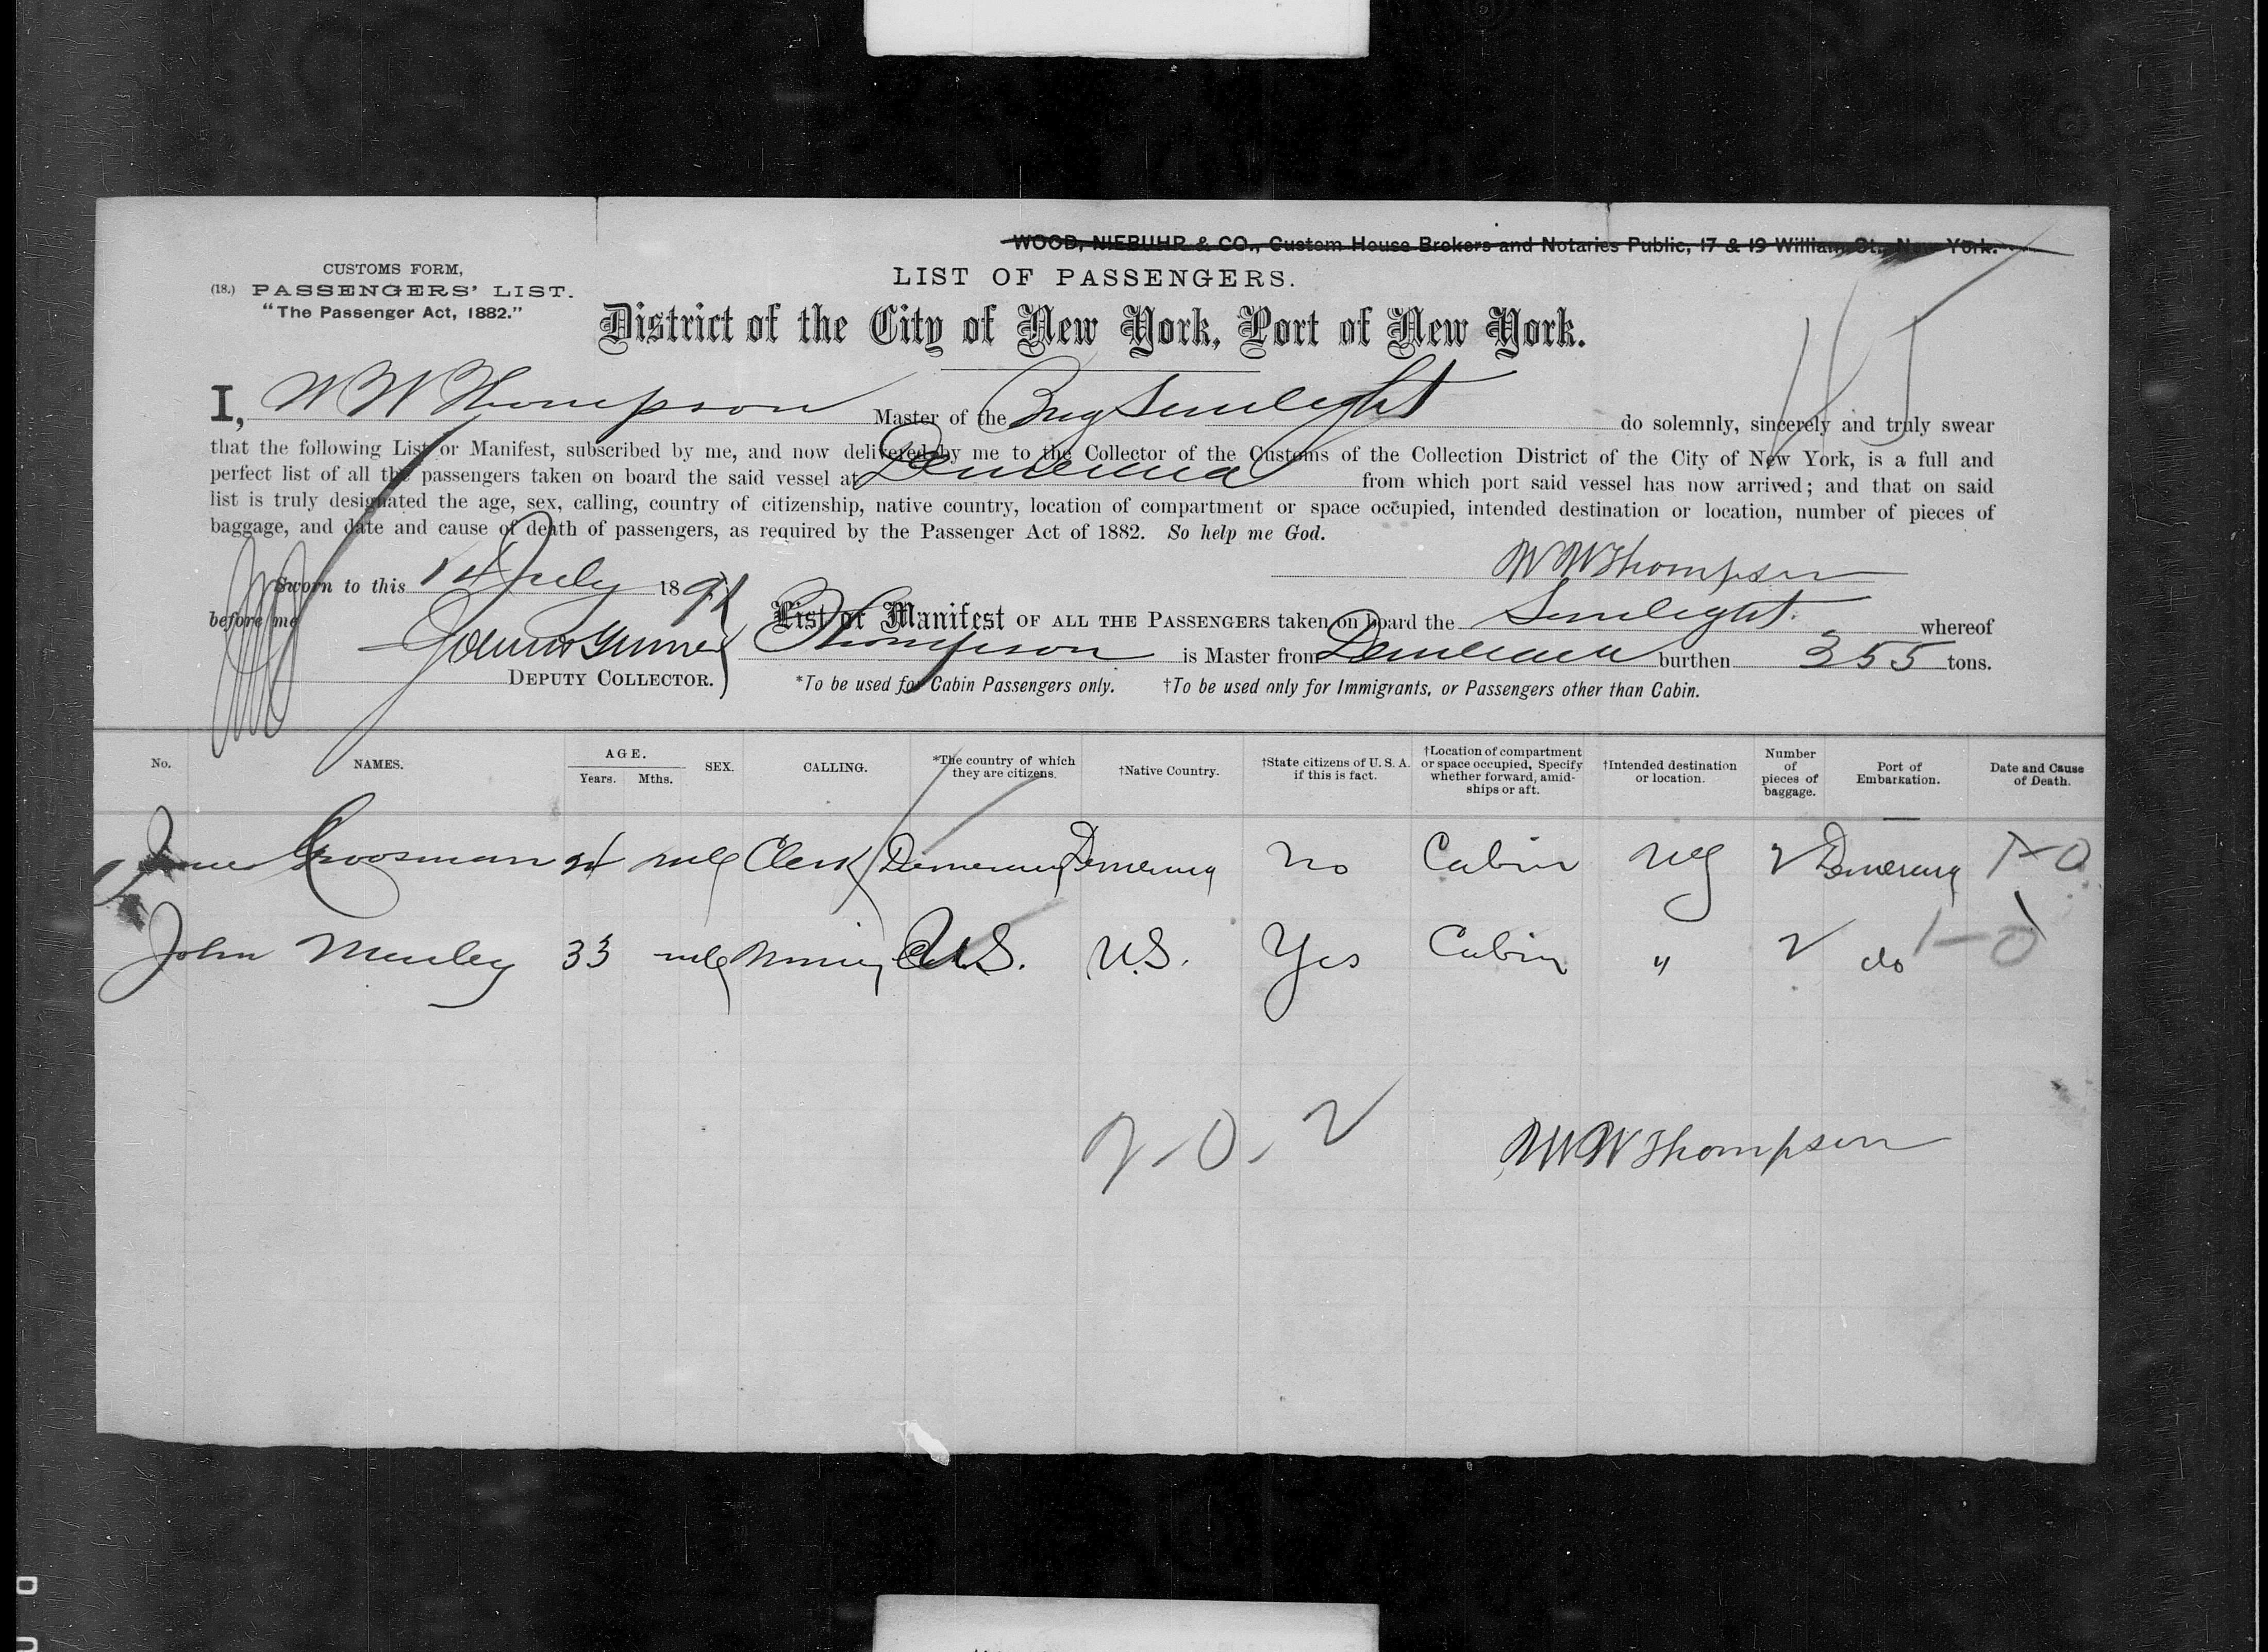 WOOD, NIEBUHR & CO., Custom House Brokers and Notaries Public, 17 & 19 William St., New York.
CUSTOMS FORM,
(18.) PASSENGERS' LIST.
"The Passenger Act, 1882."
LIST OF PASSENGERS.
District of the City of New York, Port of New York.
I, W W Thompson Master of the Brig Sunlight do solemnly, sincerely and truly swear
that the following List or Manifest, subscribed by me, and now delivered by me to the Collector of the Customs of the Collection District of the City of New York, is a full and
perfect list of all the passengers taken on board the said vessel at Demerara from which port said vessel has now arrived; and that on said
list is truly designated the age, sex, calling, country of citizenship, native country, location of compartment or space occupied, intended destination or location, number of pieces of
baggage, and date and cause of death of passengers, as required by the Passenger Act of 1882. So help me God.
W W Thompson
Sworn to this 14 July 1891
before me
DEPUTY COLLECTOR.
List or Manifest OF ALL THE PASSENGERS taken on board the Sunlight whereof
Thompson is Master from Demerara burthen 355 tons.
*To be used for Cabin Passengers only. †To be used only for Immigrants, or Passengers other than Cabin.
No. NAMES. AGE. Years. Mths. SEX. CALLING. *The country of which they are citizens. †Native Country. †State citizens of U. S. A. if this is fact. †Location of compartment or space occupied, Specify whether forward, amidships or aft. †Intended destination or location. Number of pieces of baggage. Port of Embarkation. Date and Cause of Death.
Groosman Clerk Demerara Demerara No Cabin NY 2 Demerara 1-0
John Menley 33 U.S. U.S. Yes Cabin " 2 do 1-0
2-0-2
W W Thompson